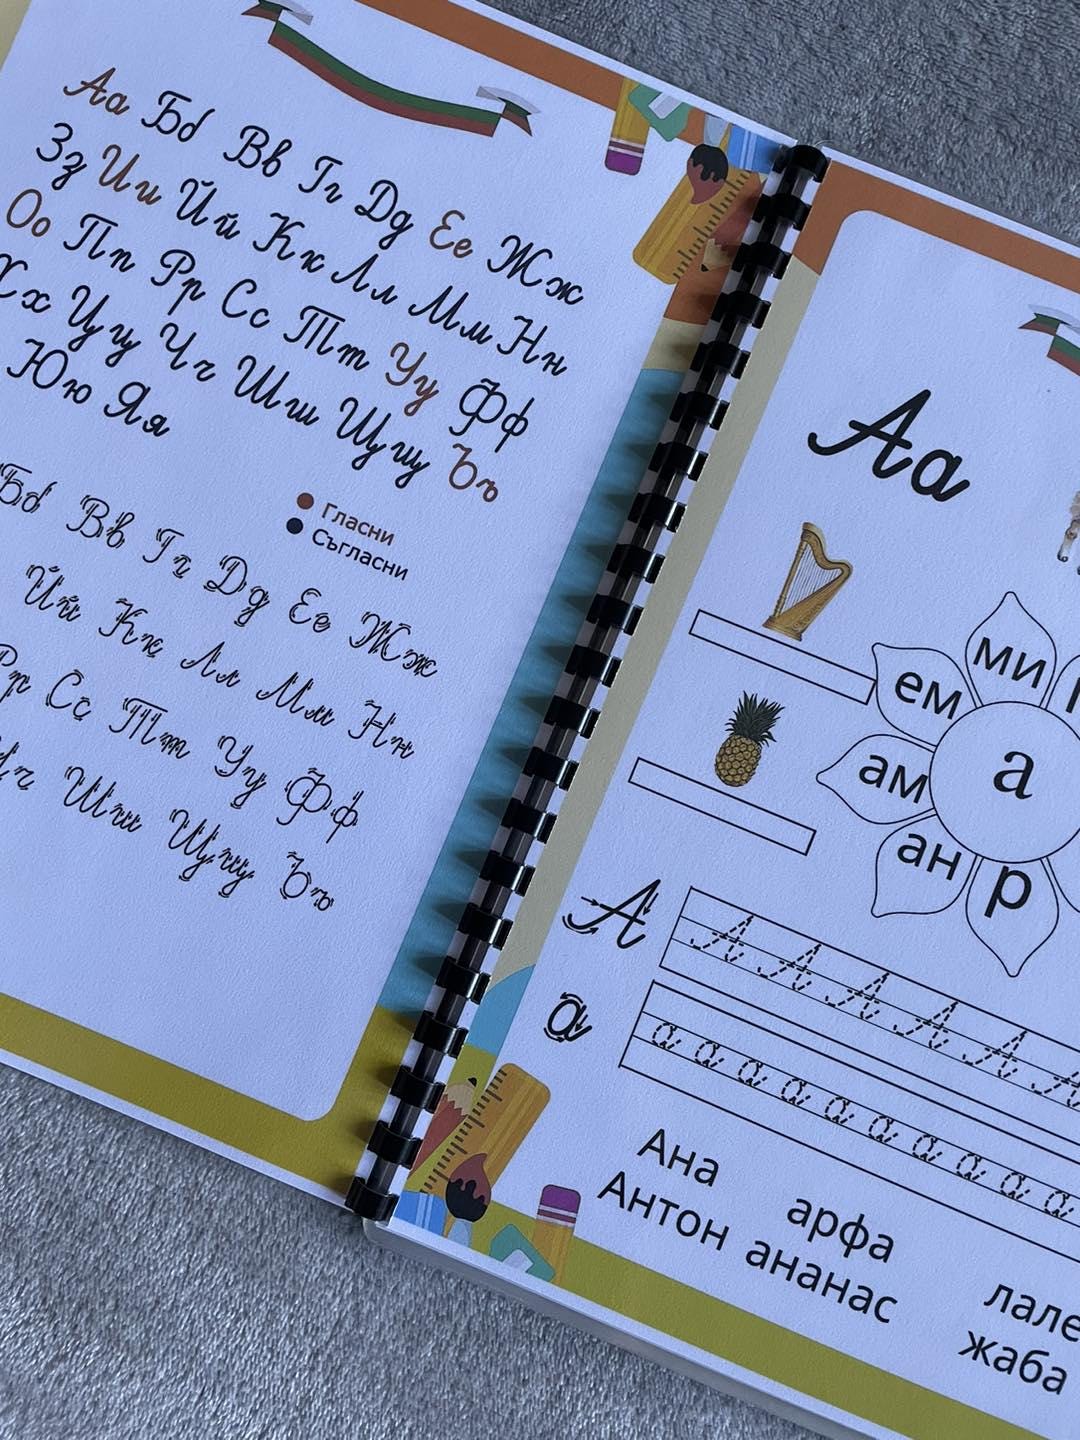 Аа Бб Вв Гг Дд Ее Жж
Зз Ии Йй Кк Лл Мм Нн
Оо Пп Рр Сс Тт Уу Фф
Хх Цц Чч Шш Щщ Ъъ
Юю Яя
Гласни
Съгласни
Бб Вв Гг Дд Ее Жж
Йй Кк Лл Мм Нн
Рр Сс Тт Уу Фф
Шш Щщ Ъъ
Аа
ем
ми
ам
а
ан
р
А А А А А А А
а а а а а а а а а а а
Ана арфа
Антон ананас
жаба